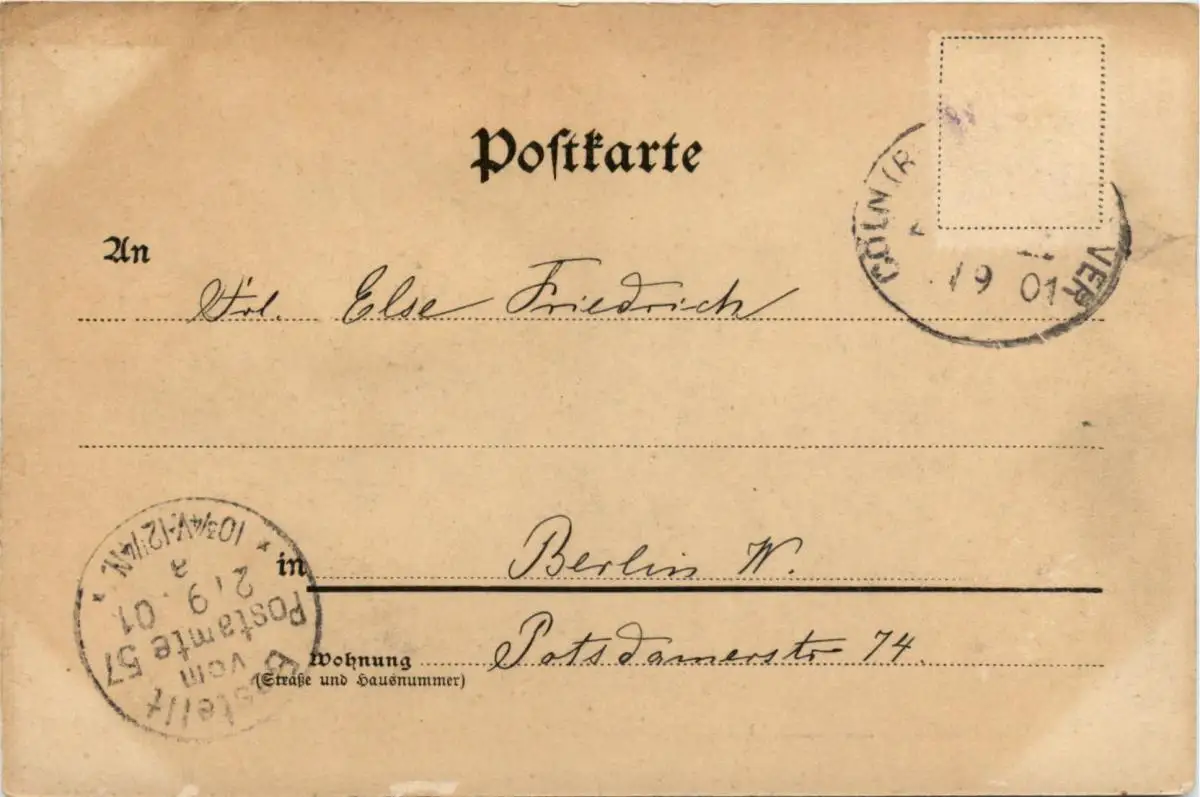 Postkarte
CÖLN (R
VER
/9 01
An
Frl. Else Friedrich
in Berlin W.
Wohnung Potsdamerstr 74.
(Straße und Hausnummer)
Bestellt
vom
Postamte 57
2/9. 01.
a
* 10¾V-12¼N. *